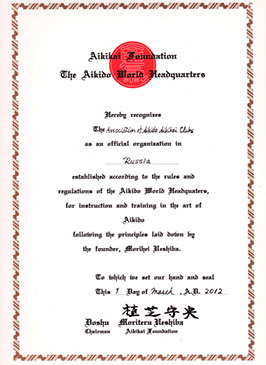 Aikikai Foundation
The Aikido World Headquarters
Hereby recognizes
The Association of Aikido Aikikai Clubs
as an official organization in
Russia
established according to the rules and
regulations of the Aikido World Headquaters,
for instruction and training in the art of
Aikido
following the principles laid down by
the founder, Morihei Ueshiba.
To which we set our hand and seal
This 1 Day of March, A.D. 2012
植芝守央
Doshu Moriteru Ueshiba
Chairman Aikikai Foundation